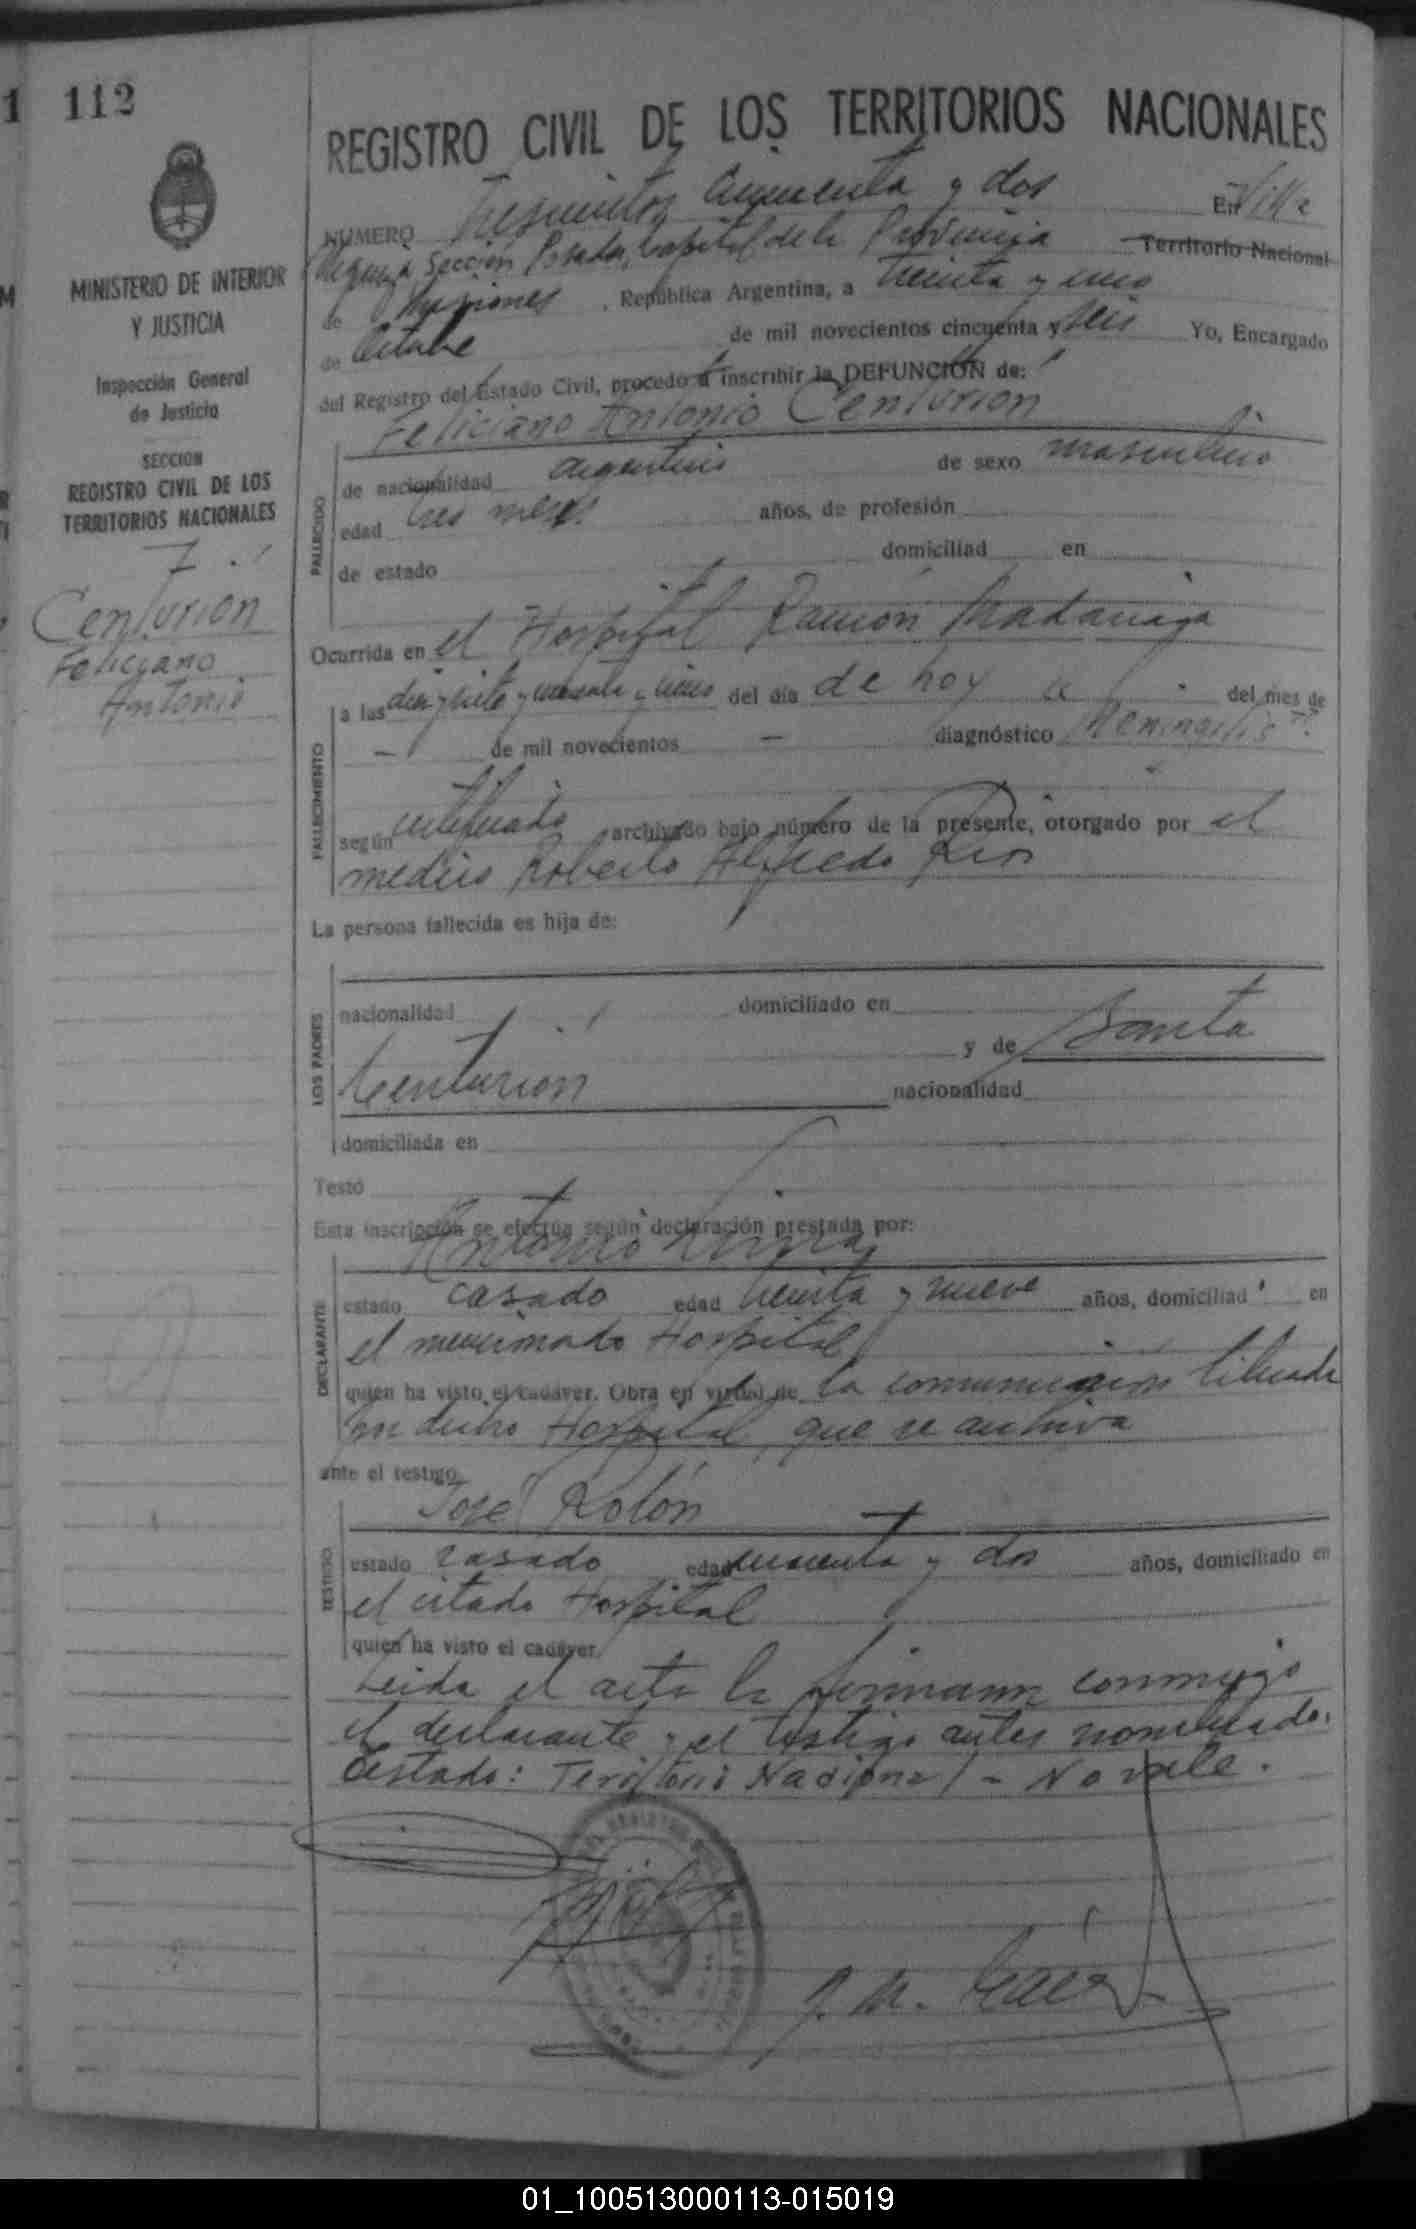 112
REGISTRO CIVIL DE LOS TERRITORIOS NACIONALES
MINISTERIO DE INTERIOR
Y JUSTICIA
Inspección General
de Justicia
SECCION
REGISTRO CIVIL DE LOS
TERRITORIOS NACIONALES
Centurión
Feliciano
Antonio
NUMERO Trescientos cincuenta y dos En Villa
Sección Posadas, Capital de la Provincia Territorio Nacional
de Misiones , República Argentina, a treinta y uno
de Octubre de mil novecientos cincuenta y seis Yo, Encargado
del Registro del Estado Civil, procedo a inscribir la DEFUNCION de:
Feliciano Antonio Centurión
FALLECIDO
de nacionalidad argentino de sexo masculino
edad tres meses años, de profesión
de estado domiciliad en
Ocurrida en el Hospital Ramón Madariaga
FALLECIMIENTO
a las diez y siete y cuarenta y cinco del día de hoy del mes de
— de mil novecientos — diagnóstico Meningitis
según certificado archivado bajo número de la presente, otorgado por el
médico Roberto Alfredo Rios
La persona fallecida es hija de:
LOS PADRES
nacionalidad domiciliado en
y de Santa
Centurión nacionalidad
domiciliada en
Testó
Esta inscripción se efectúa según declaración prestada por:
Antonio
DECLARANTE
estado casado edad treinta y nueve años, domiciliad en
el mencionado Hospital
quien ha visto el cadáver. Obra en virtud de la comunicación librada
en dicho Hospital, que se archiva
ante el testigo
José Rolón
TESTIGO
estado casado edad cuarenta y dos años, domiciliado en
el citado Hospital
quien ha visto el cadáver.
Leida el acta la firmann conmigo
el declarante y el testigo antes nombrado.
Testado: Territorio Nacional - No vale.
01_100513000113-015019